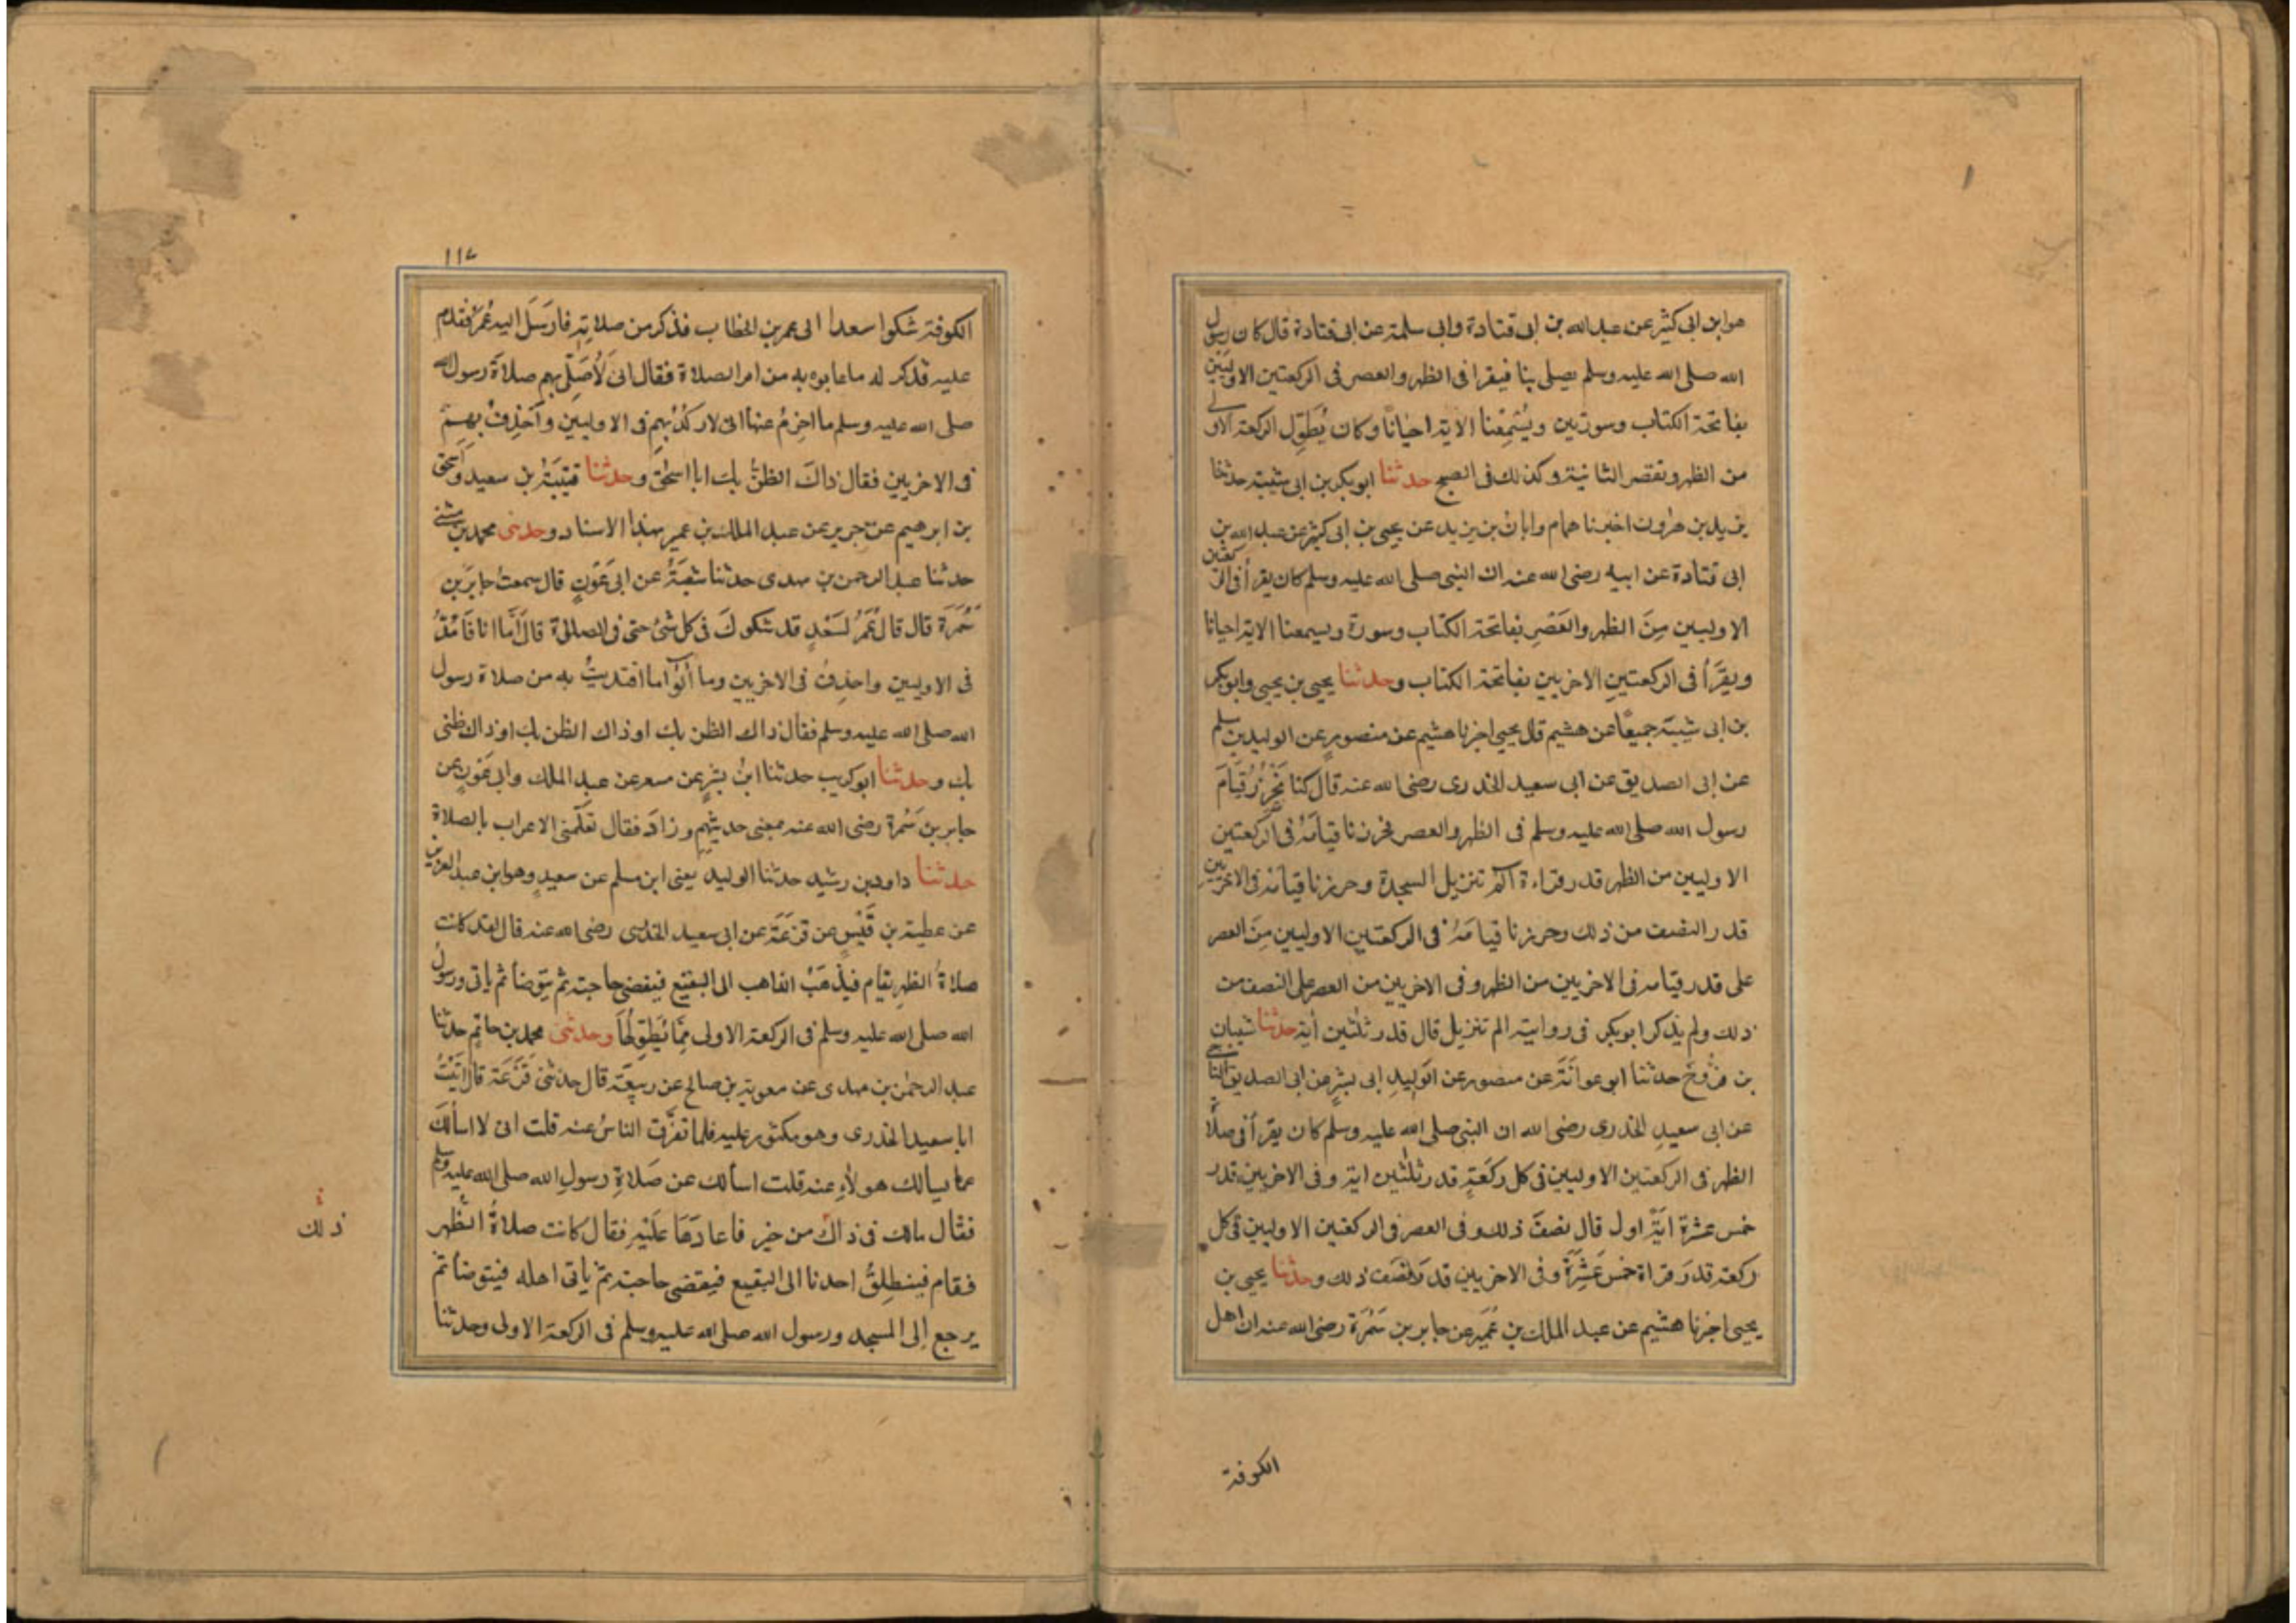 هو ابن ابى كثير عن عبد الله بن ابى قتادة وابى سلمة عن ابى قتادة قال كان رسول
الله صلى الله عليه وسلم يصلى بنا فيقرا فى الظهر والعصر فى الركعتين الاوليين
بفاتحة الكتاب وسورتين ويُسْمِعُنا الاية احيانًا وكان يُطَوِّل الركعة الاولى
من الظهر وتقصر الثانية وكذلك فى الصبح حدثنا ابو بكر بن ابى شيبة حدثنا
يزيد بن هارون اخبرنا همام وابان بن يزيد عن يحيى بن ابى كثير عن عبد الله بن
ابى قتادة عن ابيه رضى الله عنه ان النبى صلى الله عليه وسلم كان يقرأ فى الركعتين
الاوليين مِنَ الظهر والعَصْرِ بفاتحة الكتاب وسورة ويسمعنا الاية احيانا
ويقرَأُ فى الركعتين الاخريين بفاتحة الكتاب وحدثنا يحيى بن يحيى وابو بكر
بن ابى شيبة جميعًا عن هشيم قال يحيى اخبرنا هشيم عن منصورٍ عن الوليد بن مسلم
عن ابى الصديق عن ابى سعيد الخدرى رضى الله عنه قال كنا نَحْزِرُ قِيَامَ
رسول الله صلى الله عليه وسلم فى الظهر والعصر فحزرنا قيامَهُ فى الركعتين
الاوليين من الظهر قدر قراءة الم تنزيل السجدة وحزرنا قيامه فى الاخريين
قدر النصف من ذلك وحزرنا قيامَهُ فى الركعتين الاوليين مِنَ العصر
على قدر قيامه فى الاخريين من الظهر وفى الاخريين من العصر على النصف من
ذلك ولم يذكر ابو بكر فى روايته الم تنزيل قال قدر ثلثين أية حدثنا شيبان
بن فرُّوخَ حدثنا ابو عوانَةَ عن منصور عن الوَلِيدِ ابى بِشْرٍ عن ابى الصديق الناجى
عن ابى سعيدٍ الخدرى رضى الله ان النبى صلى الله عليه وسلم كان يقرأ فى صلاة
الظهر فى الركعتين الاوليين فى كل ركعَةٍ قدر ثلثين اية وفى الاخريين قدر
خمس عشرة ايَةً اول قال نصفَ ذلك وفى العصر فى الركعتين الاوليين فى كل
ركعة قدرَ قراة خمس عَشْرَةَ وفى الاخريين قدرَ نصف ذلك وحدثنا يحيى بن
يحيى اخبرنا هشيم عن عبد الملك بن عُمَيرٍ عن جابر بن سَمُرَة رضى الله عنه ان اهل
الكوفة
١١٧
الكوفة شكوا سعدا الى عمر بن الخطاب فذكر من صلاتِهِ فارسَلَ اليه عُمَرُ فقدم
عليه فذكر له ما عابوه به من امر الصلاة فقال انى لَأُصَلِّى بهم صلاة رسول الله
صلى الله عليه وسلم ما اخرِمُ عنها انى لاركُدُ بهم فى الاوليين وأَحْذِفُ بهم
فى الاخريين فقال ذاك الظنُّ بك ابا اسحٰق وحدثنا قتيبَةُ بن سعيد واسحٰق
بن ابرهيم عن جرير عن عبد الملك بن عمير بهذا الاسناد وحدثنى محمد بن مثنى
حدثنا عبد الرحمن بن مهدى حدثنا شعبَةُ عن ابى عَوْنٍ قال سمعت جابرَ بن
سَمُرَة قال قال عُمَرُ لسَعْدٍ قد شكوكَ فى كل شئ حتى فى الصلاة قال أَمَّا انا فَأَمُدُّ
فى الاوليين واحذِفُ فى الاخريين وما آلُوا ما اقتديتُ به من صلاة رسول
الله صلى الله عليه وسلم فقال ذاك الظن بك او ذاك الظن بك او ذاك ظنى
بك وحدثنا ابو كريب حدثنا ابنُ بشرٍ عن مسعر عن عبد الملك وابى عَوْنٍ عن
جابر بن سَمُرة رضى الله عنه بمعنى حديثِهِم وزادَ فقال تعلّمنى الاعراب بالصلاة
حدثنا داود بن رشيد حدثنا الوليد يعنى ابن مسلم عن سعيدٍ وهو ابن عبد العزيز
عن عطية بن قَيْسٍ عن قزعَةَ عن ابى سعيد الخدرى رضى الله عنه قال لقد كانت
صلاةُ الظهر تقام فيذهَبُ الذاهب الى البقيع فيقضى حاجته ثم يتوضأ ثم ياتى ورسول
الله صلى الله عليه وسلم فى الركعة الاولى مِمَّا يُطَوِّلُهَا وحدثنى محمد بن حاتم حدثنا
عبد الرحمٰن بن مهدى عن معوية بن صالح عن ربيعَة قال حدثنى قَزَعَة قال اتَيْتُ
ابا سعيد الخدرى وهو مكثور عليه فلما تفَرَّق الناسُ عنه قلت انى لا اسألكَ
عما يسالك هولاءِ عنه قلت اسألك عن صَلاةِ رسولِ الله صلى الله عليه وسلم
فقال مالك فى ذاك من خير فاعادَهَا عَلَيْهِ فقال كانت صلاةُ الظهر
فقام فينطلِقُ احدنا الى البقيع فيقضى حاجته ثم ياتى اهله فيتوضأ ثم
يرجع إلى المسجد ورسول الله صلى الله عليه وسلم فى الركعة الاولى وحدثنا
ذلك